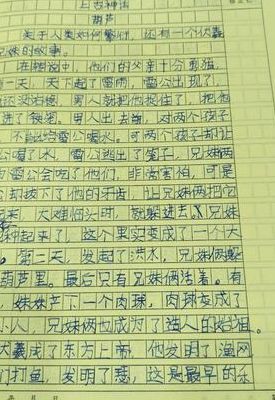 上古神话
葫芦
关于人类如何繁衍,还有一个伏羲
兄妹的故事。
在相说中,他们的父亲十分勇猛。
一天,天下起了雷雨,雷公出现了,
还没站稳,男人就把他捉住了,把他
进了铁笼。男人出去前,对两个孩子
不能给雷公喝水。可两个孩子却让
公喝了水,雷公逃出了笼子,兄妹俩
为雷公会吃了他们,非常害怕,可是
公却拔下了他的牙齿,让兄妹俩把它
起来,大难临头时,就躲进去。兄妹
种起来了,这个果实变成了一个大
。第二天,发起了洪水,兄妹俩躲
葫芦里。最后只有兄妹俩活着。有
,妹妹产下一个肉球,肉球变成了
小人,兄妹俩也成为了造人的始祖。
伏羲成了东方上帝,他发明了渔网
们打鱼,发明了瑟,这是最早的乐
年 月 日